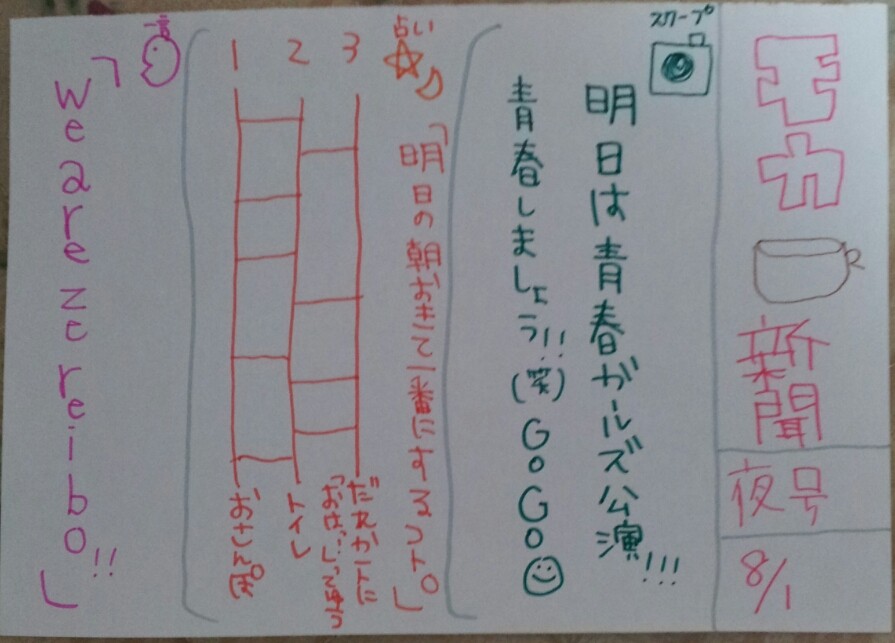 モカ
新聞
夜号
8/1
スクープ
明日は青春ガールズ公演!!!
青春しましょう!!!(笑)GoGo
占い
「明日の朝おきて一番にするコト。」
3
2
1
だれか一人に
「おはよ」ってゆう
トイレ
一言
「wearezereibo!!」